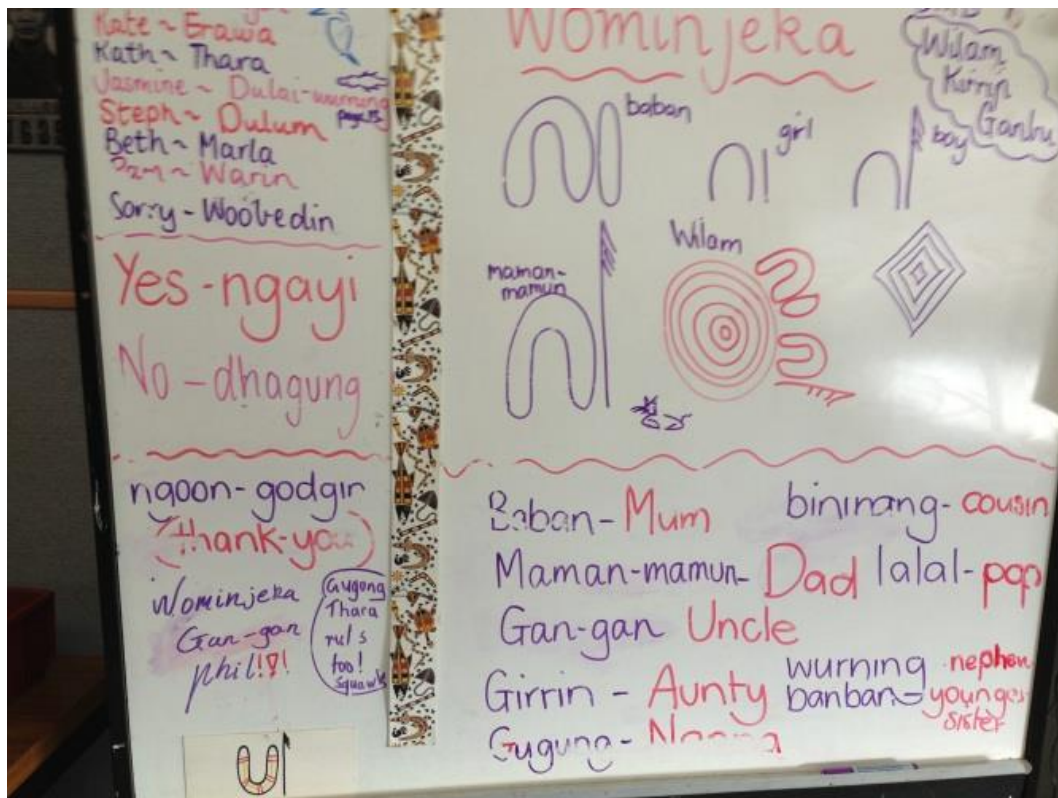 Kate ~ Erawa
Kath ~ Thara
Jasmine ~ Dulai-wurrung
Steph ~ Dulum
Beth ~ Marla
~ Warin
Sorry - Woobedin
Yes - ngayi
No - dhagung
ngoon-godgin
(thank-you)
Wominjeka
Gan-gan
phil!!!
Gugong
Thara
ruls
too!
Squawk
Wominjeka
Wilam
Kirrip
Ganbu
baban
girl
boy
maman-
mamun
Wilam
Baban - Mum
Maman-mamun - Dad
Gan-gan Uncle
Girrin - Aunty
Gugung -
bininang - cousin
lalal - pop
wurning nephew
banban - younger
sister